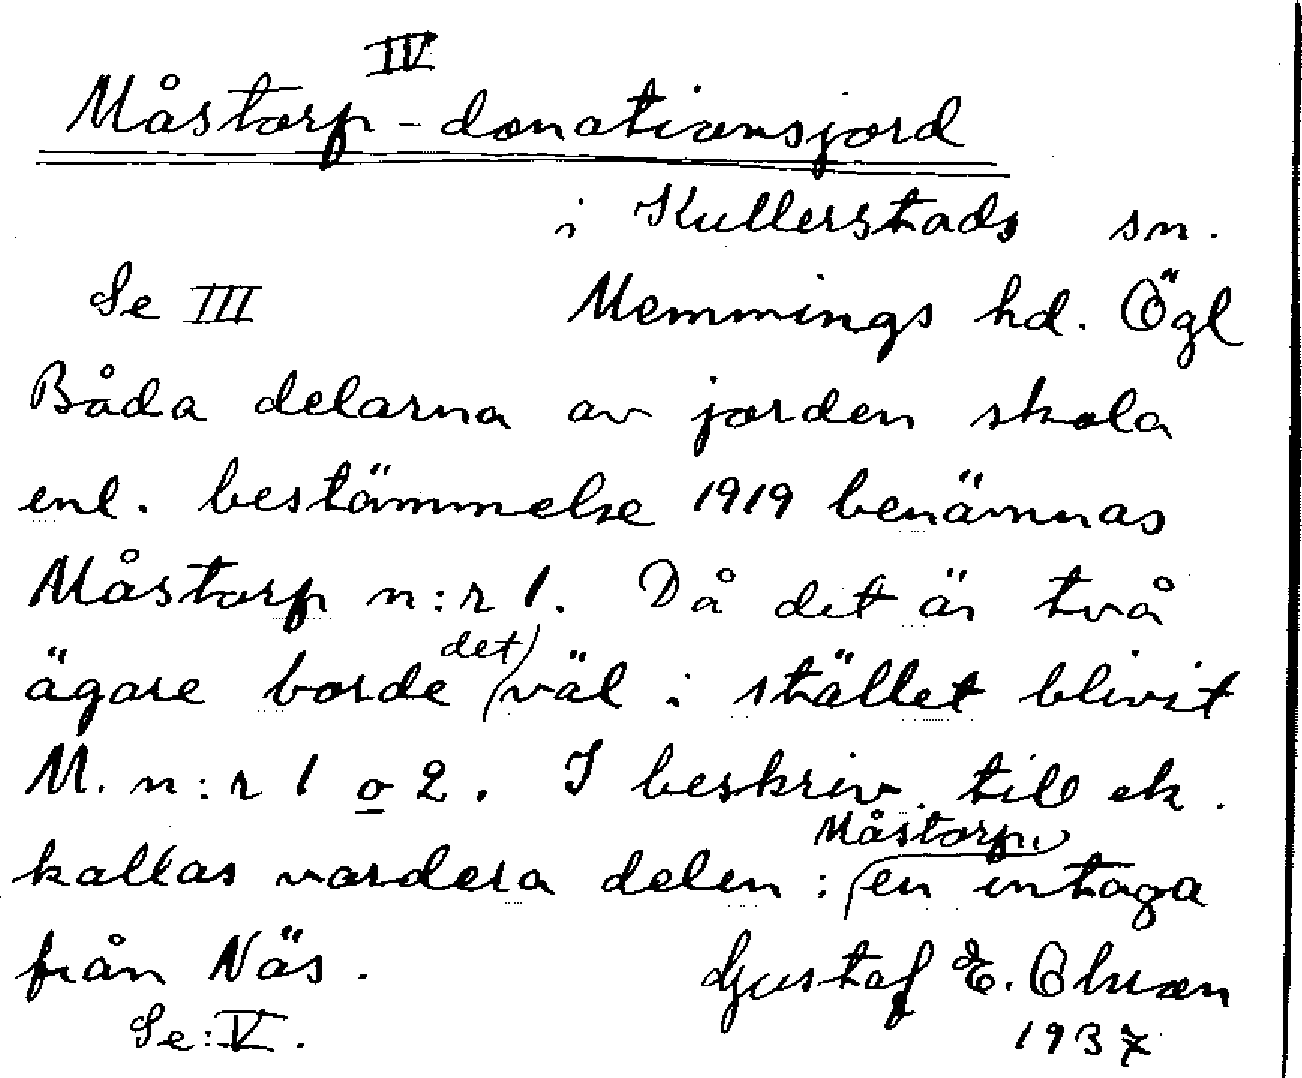 IV
Måstorp - donationsjord
i Kullerstads sn.
Se III Memmings hd. Ögl
Båda delarna av jorden skola
enl. bestämmelse 1919 benämnas
Måstorp n:r 1. Då det är två
ägare borde det väl i stället blivit
M. n:r 1 o 2. I beskriv. till ek.
kallas vardera delen: Måstorp, en intaga
från Näs. Gustaf E. Olsson
Se: V. 1937